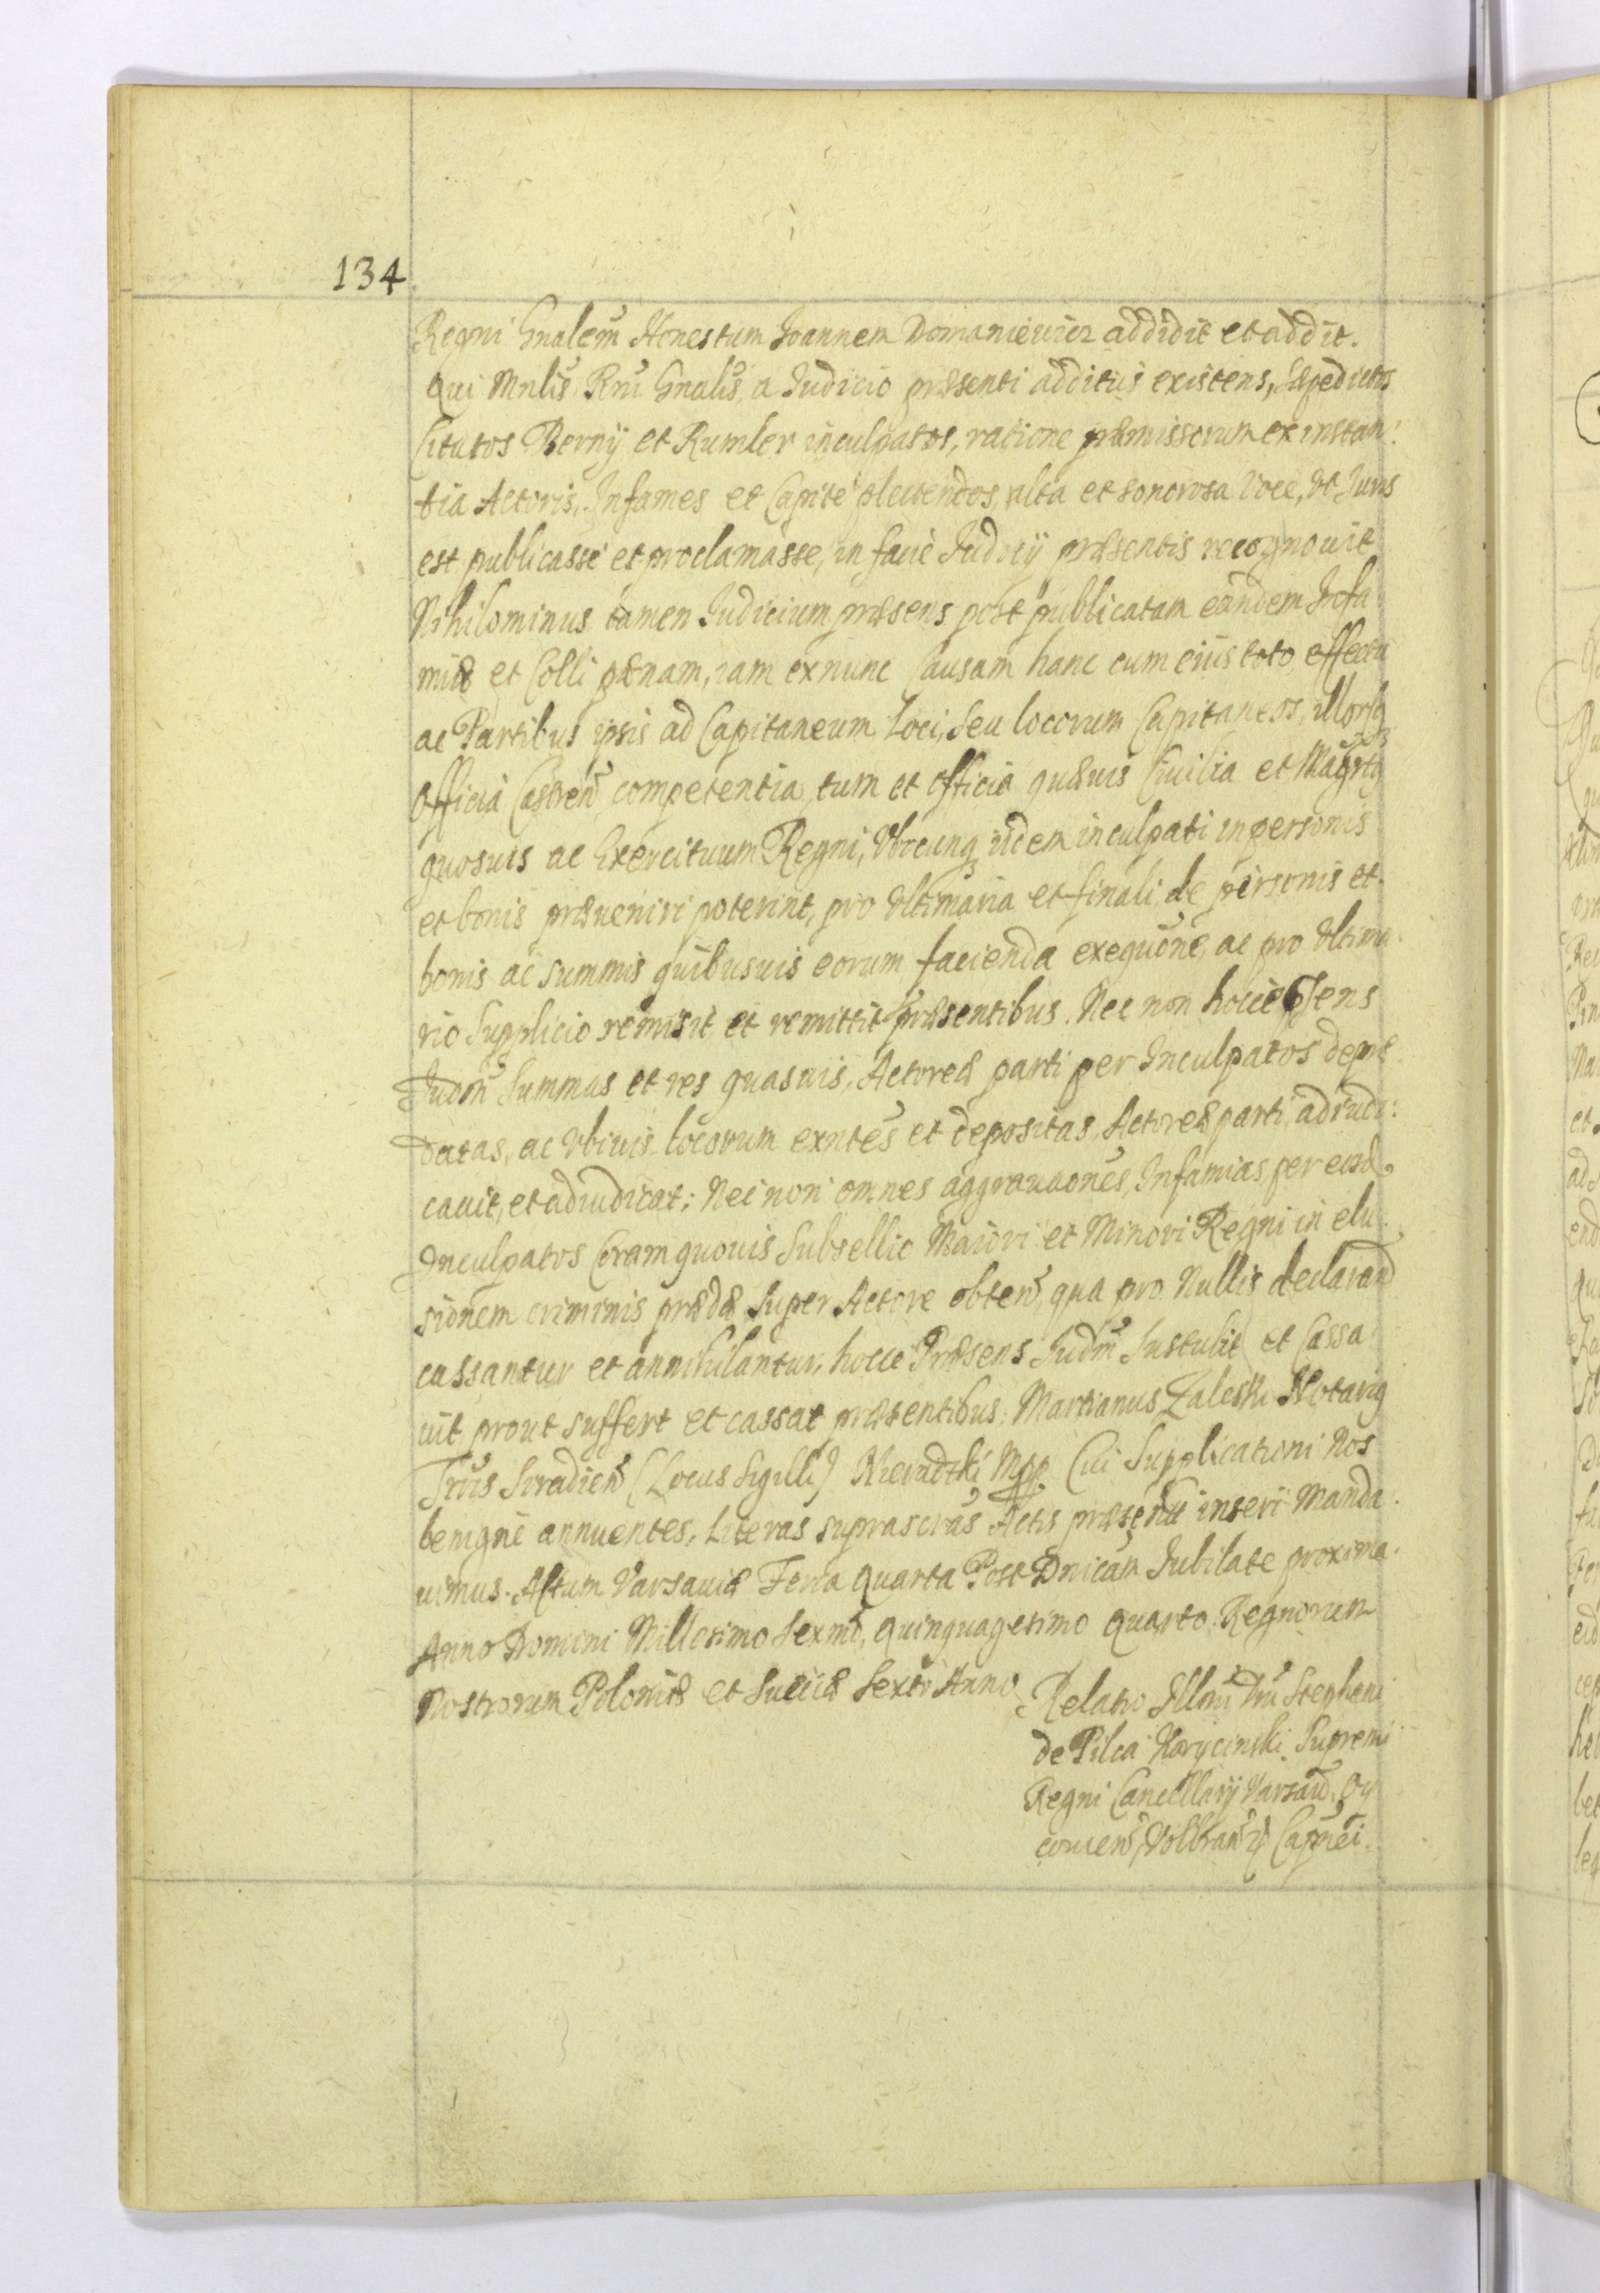 134
Regni Gnalem Honestum Joannem Domaniewicz addidit et addit.
Qui Mnlis Rni Gnalis, a Judicio præsenti additus existens, sæpedictos
Citatos Berny et Rumler inculpatos, ratione præmissorum ex instan:
tia Actoris, Infames et Capite plectendos, alta et sonorosa Voce, Vt Juris
est publicasse et proclamasse, in facie Judicij præsentis recognouit
Nihilominus tamen Judicium præsens post publicatam eandem Infa
miæ et Colli pænam, iam ex nunc Causam hanc cum eius toto effectu
ac Partibus ipsis ad Capitaneum Loci, seu locorum Capitaneos, illorsq
Officia Castren competentia, tum et Officia quæuis Ciuilia et Magrtq
quosuis ac Exercituum Regni, Vbicunq iidem inculpati in personis
et bonis præueniri poterint, pro Vltimaria et finali de personis et
bonis ac summis quibusuis eorum facienda exequõne, ac pro Vltima
rio Supplicio remisit et remittit præsentibus. Nec non hocce Psens
Judm Summas et res quasuis, Actoreæ parti per Inculpatos depræ
datas, ac Vbiuis locorum exntes et depositas, Actoreæ parti adiudi:
cauit, et adiudicat; Nec non omnes aggrauõnes, Infamias, per eosd
Inculpatos Coram quouis Subsellio Maiori et Minori Regni in elu
sionem criminis prædæ super Actore obten, qua pro Nullis declarand
cassantur et annihilantur, hocce Præsens Judm Sustulit et Cassa
uit prout suffert et cassat præsentibus. Martianus Zaleski Notariq
Trris Siradien (Locus Sigilli) Nieradzki Mpp. Cui Supplicationi Nos
benigne annuentes, Literas suprascras Actis præsentibus inseri Manda
uimus. Actum Varsauiæ Feria Quarta Post Dnicam Jubilate proxima
Anno Domini Millesimo Sexmo, Quinquagesimo Quarto. Regnorum
Nostrorum Poloniæ et Sueciæ Sexto Anno.
Relatio Illmi Dni Stephani
de Pilca Korycinski Supremi
Regni Cancellarij Varsau. Oy
couien, Volbram q Capnei.